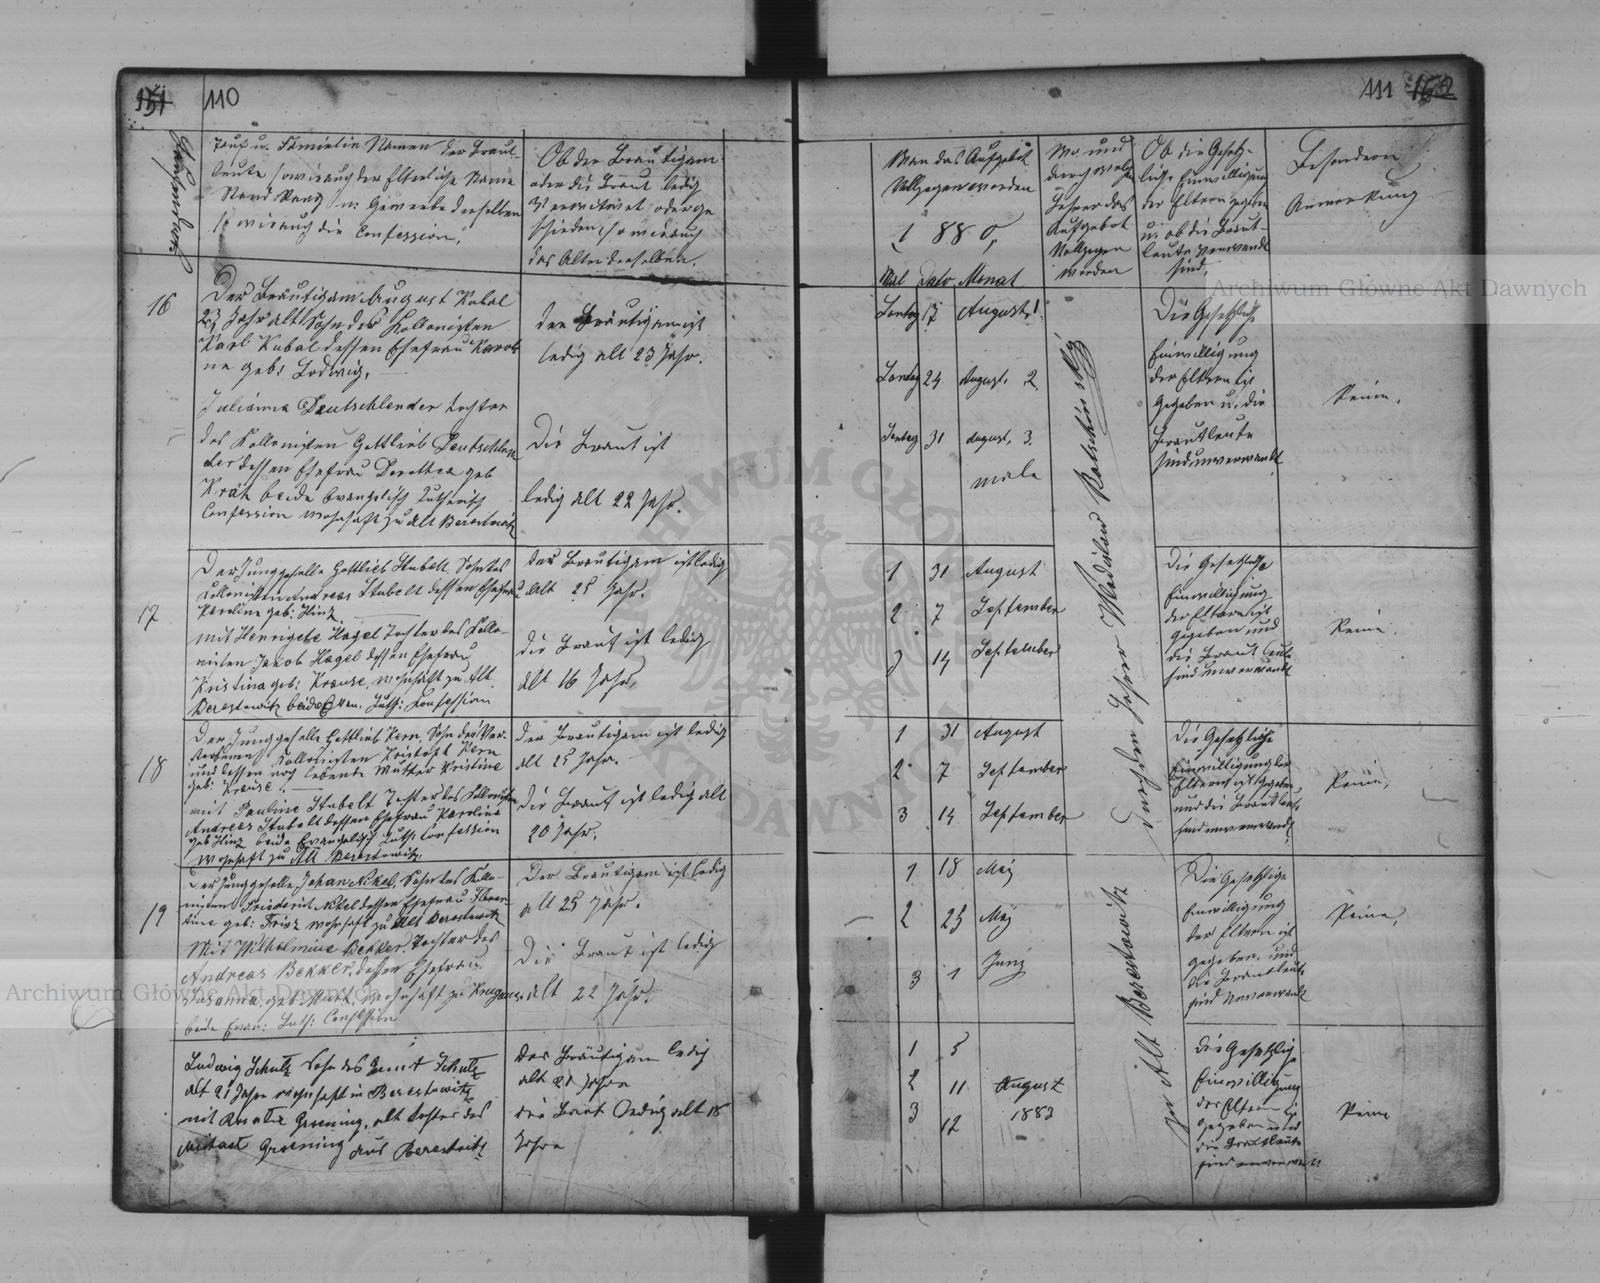 151 110
Tauf u. Familie Namen der Braut-
leute sowie auch der Elterliche Name
Stand Rang u: Gewerbe derselben
sowie auch die Confession.
Ob der Bräutigam
oder die Braut ledig
verwitwet oder ge
schieden, sowie auch
das Alter derselben.
16
Der Bräutigam August Kabal
23 Jahr alt Sohn des Kollonisten
Karl Kabal dessen Ehefrau Karoli
ne geb: Ludwig.
Julianna Deutschlender Tochter
des Kollonisten Gottlieb Deutschlen
der dessen Ehefrau Dorothea geb
Krät beide Evangelisch Lutherisch
Confession wohnhaft zu Alt Berestowitz
der Bräutigam ist
ledig alt 23 Jahr.
Die Braut ist
ledig alt 22 Jahr.
17
Der Junggeselle Gottlieb Stubelt Sohn des
Kollonisten Andreas Stubelt dessen Ehefrau
Karoline geb: Hinz
mit Henrigete Hagel Tochter des Kollo-
nisten Jakob Hagel dessen Ehefrau
Kristina geb: Krause, wohnhaft zu Alt
Berestowitz beide Evan. Luth: Confession
der Bräutigam ist ledig
alt 25 Jahr.
die Braut ist ledig
alt 16 Jahr,
18
Der Junggeselle Gottlieb Kern, Sohn des Ver-
storbenen Kollonisten Kristopt Kern
und dessen noch lebende Mutter Kristine
geb: Krause.
mit Pauline Stubelt Tochter des Kollonisten
Andreas Stubelt dessen Ehefrau Karoline
geb Hinz beide Evangelisch Luth: Confession
wohnhaft zu Alt Berestowitz.
der Bräutigam ist ledig
alt 25 Jahr.
die Braut ist ledig alt
20 Jahr.
19
Der Junggeselle Johan Nikel, Sohn des Kollo-
nisten Friderik Nikel dessen Ehefrau
geb: wohnhaft zu Alt Berestowitz
Mit Wilhelmine Bekker. Tochter des
Andreas Bekker, dessen Ehefrau
Susanna, geb wohnhaft zu
beide Evan: Luth: Confession
Der Bräutigam ist ledig
alt 25 Jahr.
Die Braut ist ledig
alt 22 Jahr.
Ludwig Schulz Sohn des Schulz
alt 21 Jahre wohnhaft in Berestowitz
mit Groening, alt Tochter des
Groening aus Berestowitz
der Bräutigam ledig
alt 21 Jahre
die Braut ledig alt 18
Jahre
111 152
Wan das Aufgebot
Vollzogen worden
1880,
Mal Dato Monat
Wo und
durch welchen
Lehrer das
Aufgebot
Vollzogen
worden
Ob die Gesetz-
liche Einwilligung
der Eltern gegeben
u. ob die Braut-
leute verwandt
sind.
Besondere
Anmerkung
Sontag 17 August, 1.
Sontag 24 August. 2
Sontag 31 August. 3.
male
Die Gesetzliche
Einwilligung
der Eltern ist
gegeben u, die
Brautleute
sind unverwandt
Keine.
1 31 August
2 7 September
3 14 September
Die Gesetzliche
Einwilligung
der Eltern ist
gegeben und
die Braut leute
sind unverwandt
Keine.
1 31 August
2 7 September
3 14 September
Die Gesetzliche
Einwilligung der
Eltern ist gegeben,
und die Brautleute
sind unverwandt
Keine,
1 18 Maj
2 25 Maj
3 1 Junij
Die Gesetzliche
Einwilligung
der Eltern ist
gegeben, und
die Brautleute
sind unverwandt
Keine,
1 5
2 11 August
3 12 1883
die Gesetzliche
Einwilligung
der Eltern ist
gegeben und
die Brautleute
sind unverwandt
Keine
Durch den Lehrer Wladislaw
zu Alt Berestowitz
Archiwum Główne Akt Dawnych
Archiwum Główne Akt Dawnych
ARCHIWUM GŁÓWNE AKT DAWNYCH